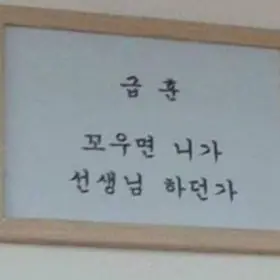 급 훈
꼬우면 니가
선생님 하던가